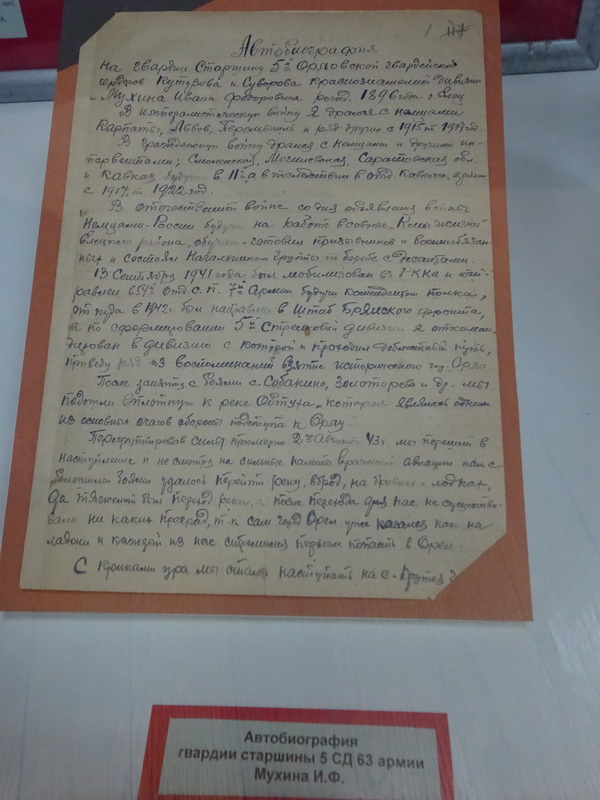 1
Автобиография
на гвардии Старшину 5й Орловской гвардейской
орденов Кутузова и Суворова краснознаменной дивизии
Мухина Ивана Федоровича рожд. 1896 года г. Елец
В империалистическую войну я дрался с немцами
Карпаты, Львов, Перемышль и ряд других с 1915 по 1917 год.
В гражданскую войну дрался с немцами и другими ин-
тервентами; Смоленской, Могилевской, Саратовской обл.
и Кавказ будучи в 11й а в последствии в отд. Кавказск. армии
с 1917 по 1922 год.
В отечественной войне со дня объявления войны
Немцами России будучи на работе в
Елецкого района, обучал готовил призывников и военнообязан-
ных и состоял Начальником группы по борьбе с Десантами.
13 Сентября 1941 года был мобилизован в Р-ККА и нап-
равлен в отд. с. п. 7й Армии будучи комендантом полка,
от куда в 1942 г. был направлен в Штаб Брянского фронта,
а по сформировании 5й Стрелковой дивизии я откоман-
дирован в дивизию с которой и проходил доблестный путь,
приведу ряд из воспоминаний взятие исторического гор. Орла.
После занятия с боями с. Собакино, Золотарева и др. мы
подошли вплотную к реке Оптуха, которая являлась одним
из основных очагов обороны подступа к Орлу
Перегруппировав силы примерно 2 го Августа 43 г. мы перешли в
наступление и не смотря на сильные налеты вражеской авиации нам с
большими боями удалось перейти реку, вброд, на бревнах лодках,
да тяжелый был переход реки, а после перехода для нас не существо-
вало ни каких преград, т-к сам город Орел уже казался как на
ладони и каждый из нас стремился первым попасть в Орел.
С криками ура мы стали наступать на с. Крутая
Автобиография
гвардии старшины 5 СД 63 армии
Мухина И.Ф.